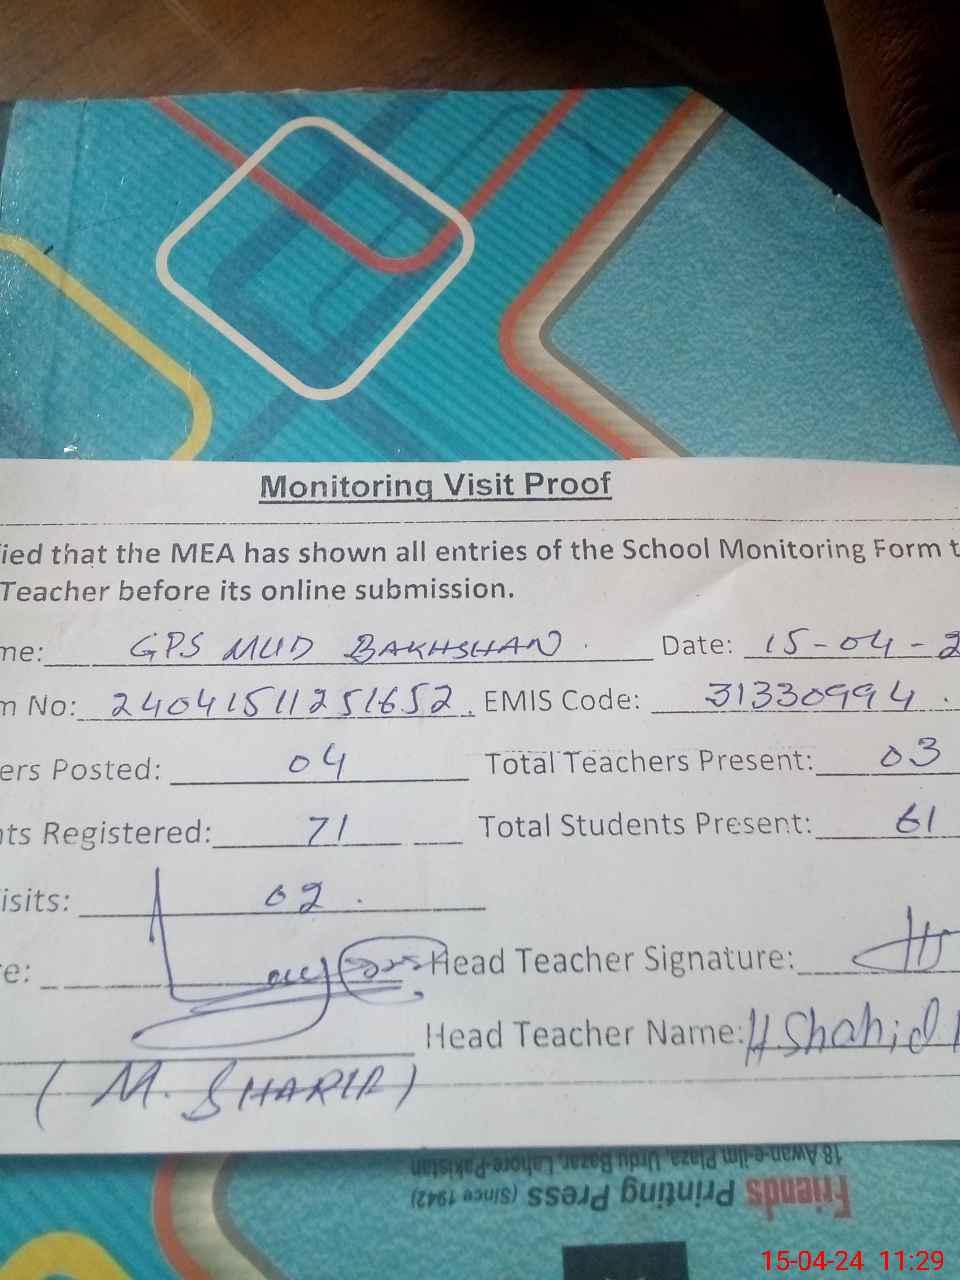 Monitoring Visit Proof
ied that the MEA has shown all entries of the School Monitoring Form t
Teacher before its online submission.
me: GPS MUD BAKHSHAN . Date: 15-04-2
m No: 24041511251652. EMIS Code: 31330994 .
ers Posted: 04 Total Teachers Present: 03
nts Registered: 71 Total Students Present: 61
isits: 02 .
e: Head Teacher Signature:
Head Teacher Name: H Shahid
( M. SHARIF )
18 Awan-e-ilm Plaza, Urdu Bazar, Lahore-Pakistan
Friends Printing Press (Since 1942)
15-04-24 11:29